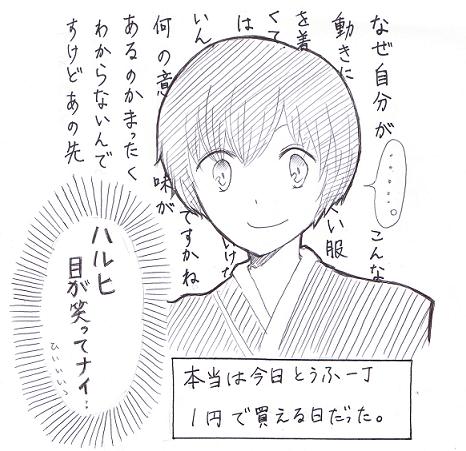 なぜ自分がこんな
動きにくい服
を着
くて
は いけな
いん ですかね
何の意味が
あるのかまったく
わからないんで
すけどあの先
……。
ハルヒ
目が笑ってナイ:
ひいいいいっ
本当は今日とうふ一丁
1円で買える日だった。